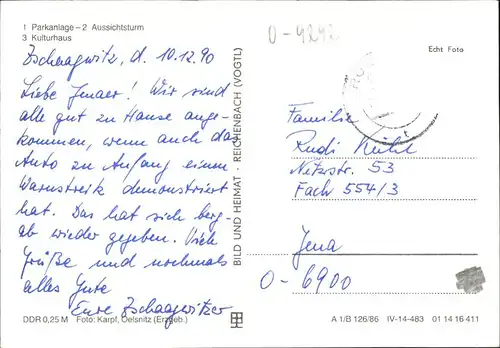 1 Parkanlage – 2 Aussichtsturm
3 Kulturhaus
Zschaagwitz, d. 10.12.90
Liebe Jenaer! Wir sind
alle gut zu Hause ange-
kommen, wenn auch das
Auto zu Anfang einen
Warnstreik demonstriert
hat. Das hat sich berg-
ab wieder gegeben. Viele
Grüße und nochmals
alles Gute
Eure Zschaagwitzer
DDR 0,25 M Foto: Karpf, Oelsnitz (Erzgeb.)
BILD UND HEIMAT · REICHENBACH (VOGTL)
O-4242
Echt Foto
Familie
Rudi
Netzstr. 53
Fach 554/3
Jena
O-6900
A 1/B 126/86 IV-14-483 01 14 16 411